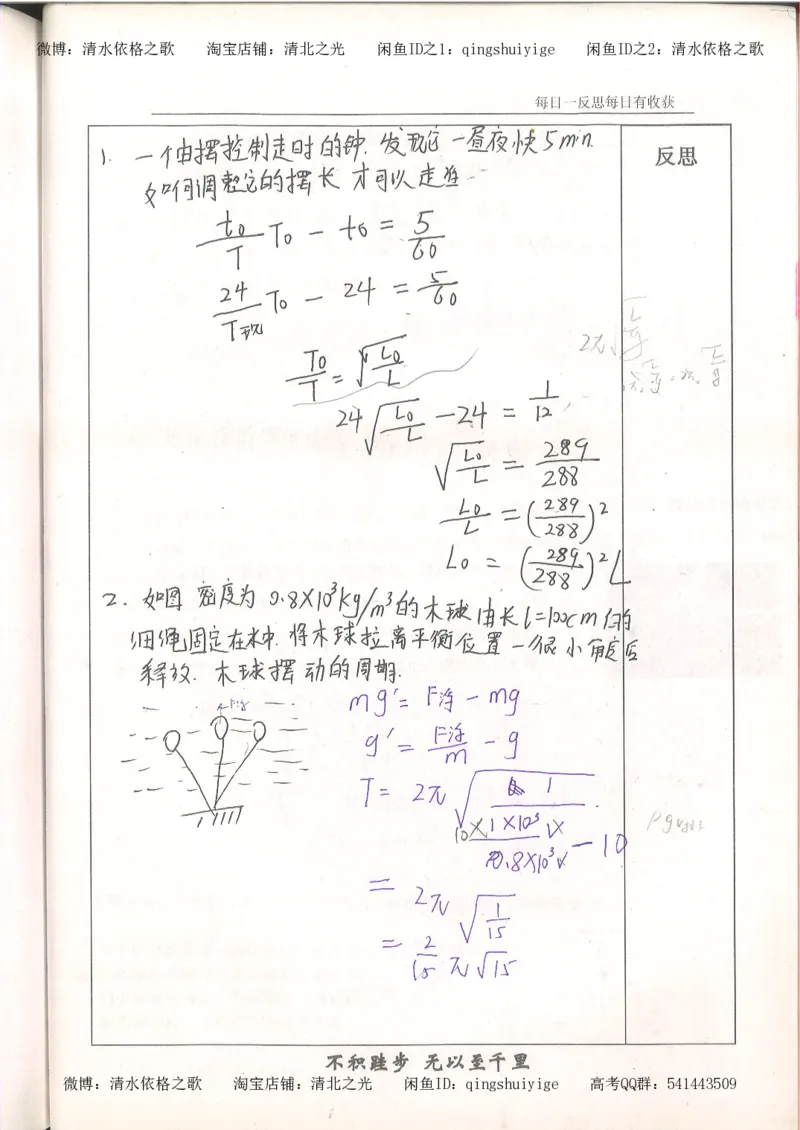 微博：清水依格之歌 淘宝店铺：清北之光 闲鱼ID之1：qingshuiyige 闲鱼ID之2：清水依格之歌
每日一反思每日有收获
反思
1. 一个由摆控制走时的钟.发现它一昼夜快5min.
如何调整它的摆长才可以走准.
t₀/T T₀ - t₀ = 5/60
24/T现 T₀ - 24 = 5/60
T₀/T = √(L₀/L)
24√(L₀/L) - 24 = 1/12
√(L₀/L) = 289/288
L₀/L = (289/288)²
L₀ = (289/288)² L
2. 如图 密度为0.8×10³kg/m³的木球由长l=100cm的
细绳固定在水中.将木球拉离平衡位置一很小角度后
释放.木球摆动的周期.
F浮
mg′= F浮 - mg
g′= F浮/m - g
T= 2π√(1/(10×1×10³V/0.8×10³V - 10))
= 2π√(1/15)
= 2/15 π√15
不积跬步 无以至千里
微博：清水依格之歌 淘宝店铺：清北之光 闲鱼ID：qingshuiyige 高考QQ群：541443509